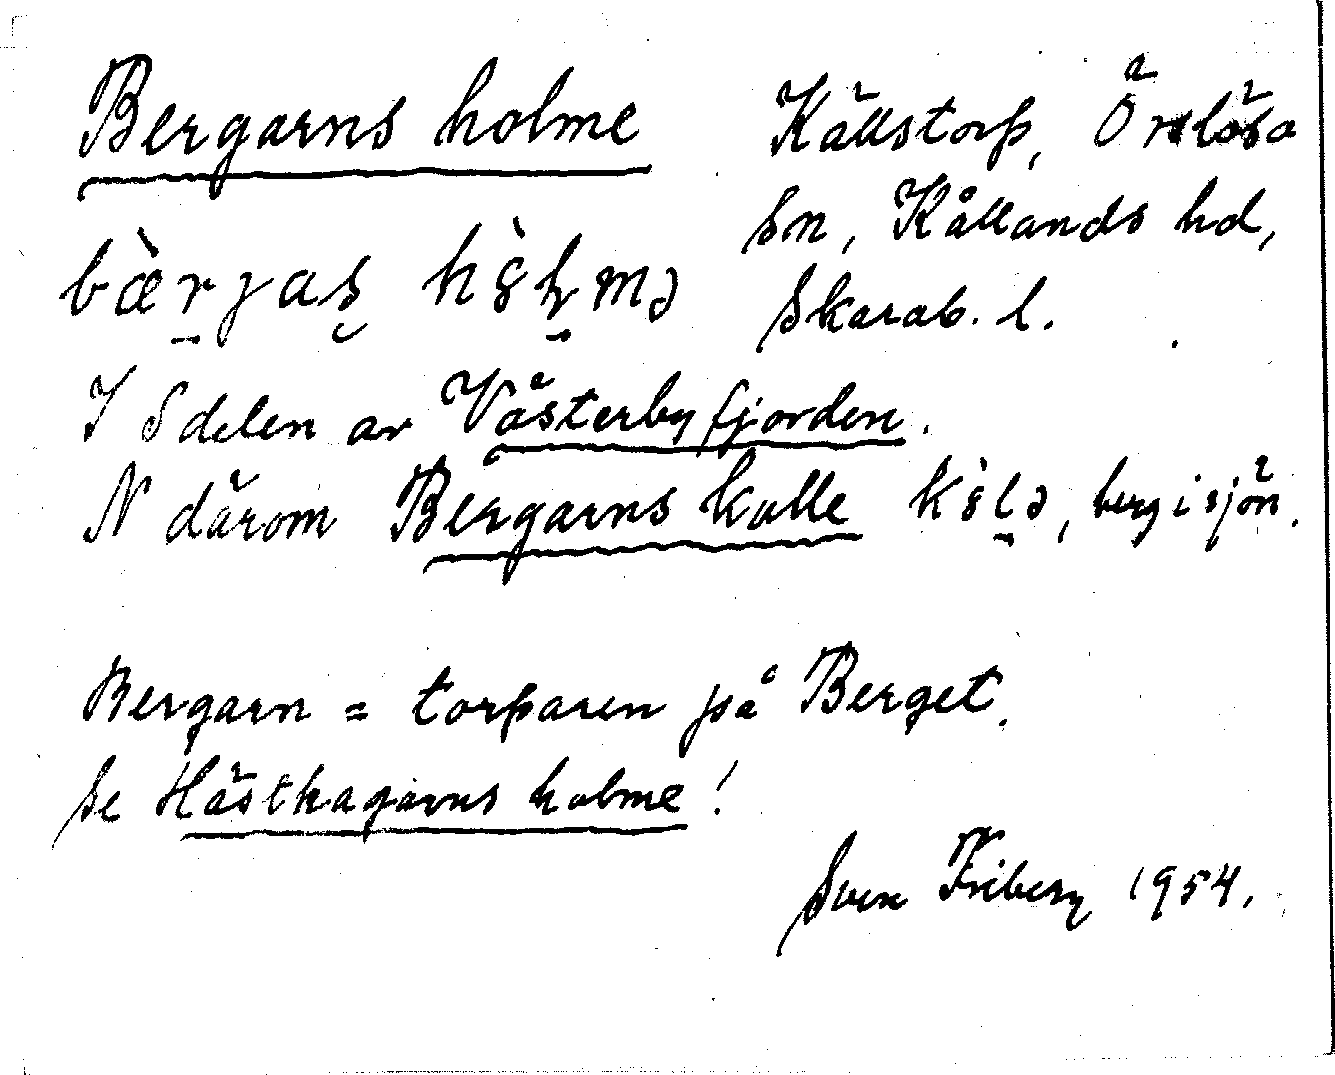 Bergarns holme
Källstorp, Örslösa
sn, Kållands hd,
Skarab. l.
I S delen av Västerbyfjorden.
N därom Bergarns kulle , berg i sjön.
Bergarn = torparen på Berget.
Se Hästhagarns holme!
Sven Friberg 1954.